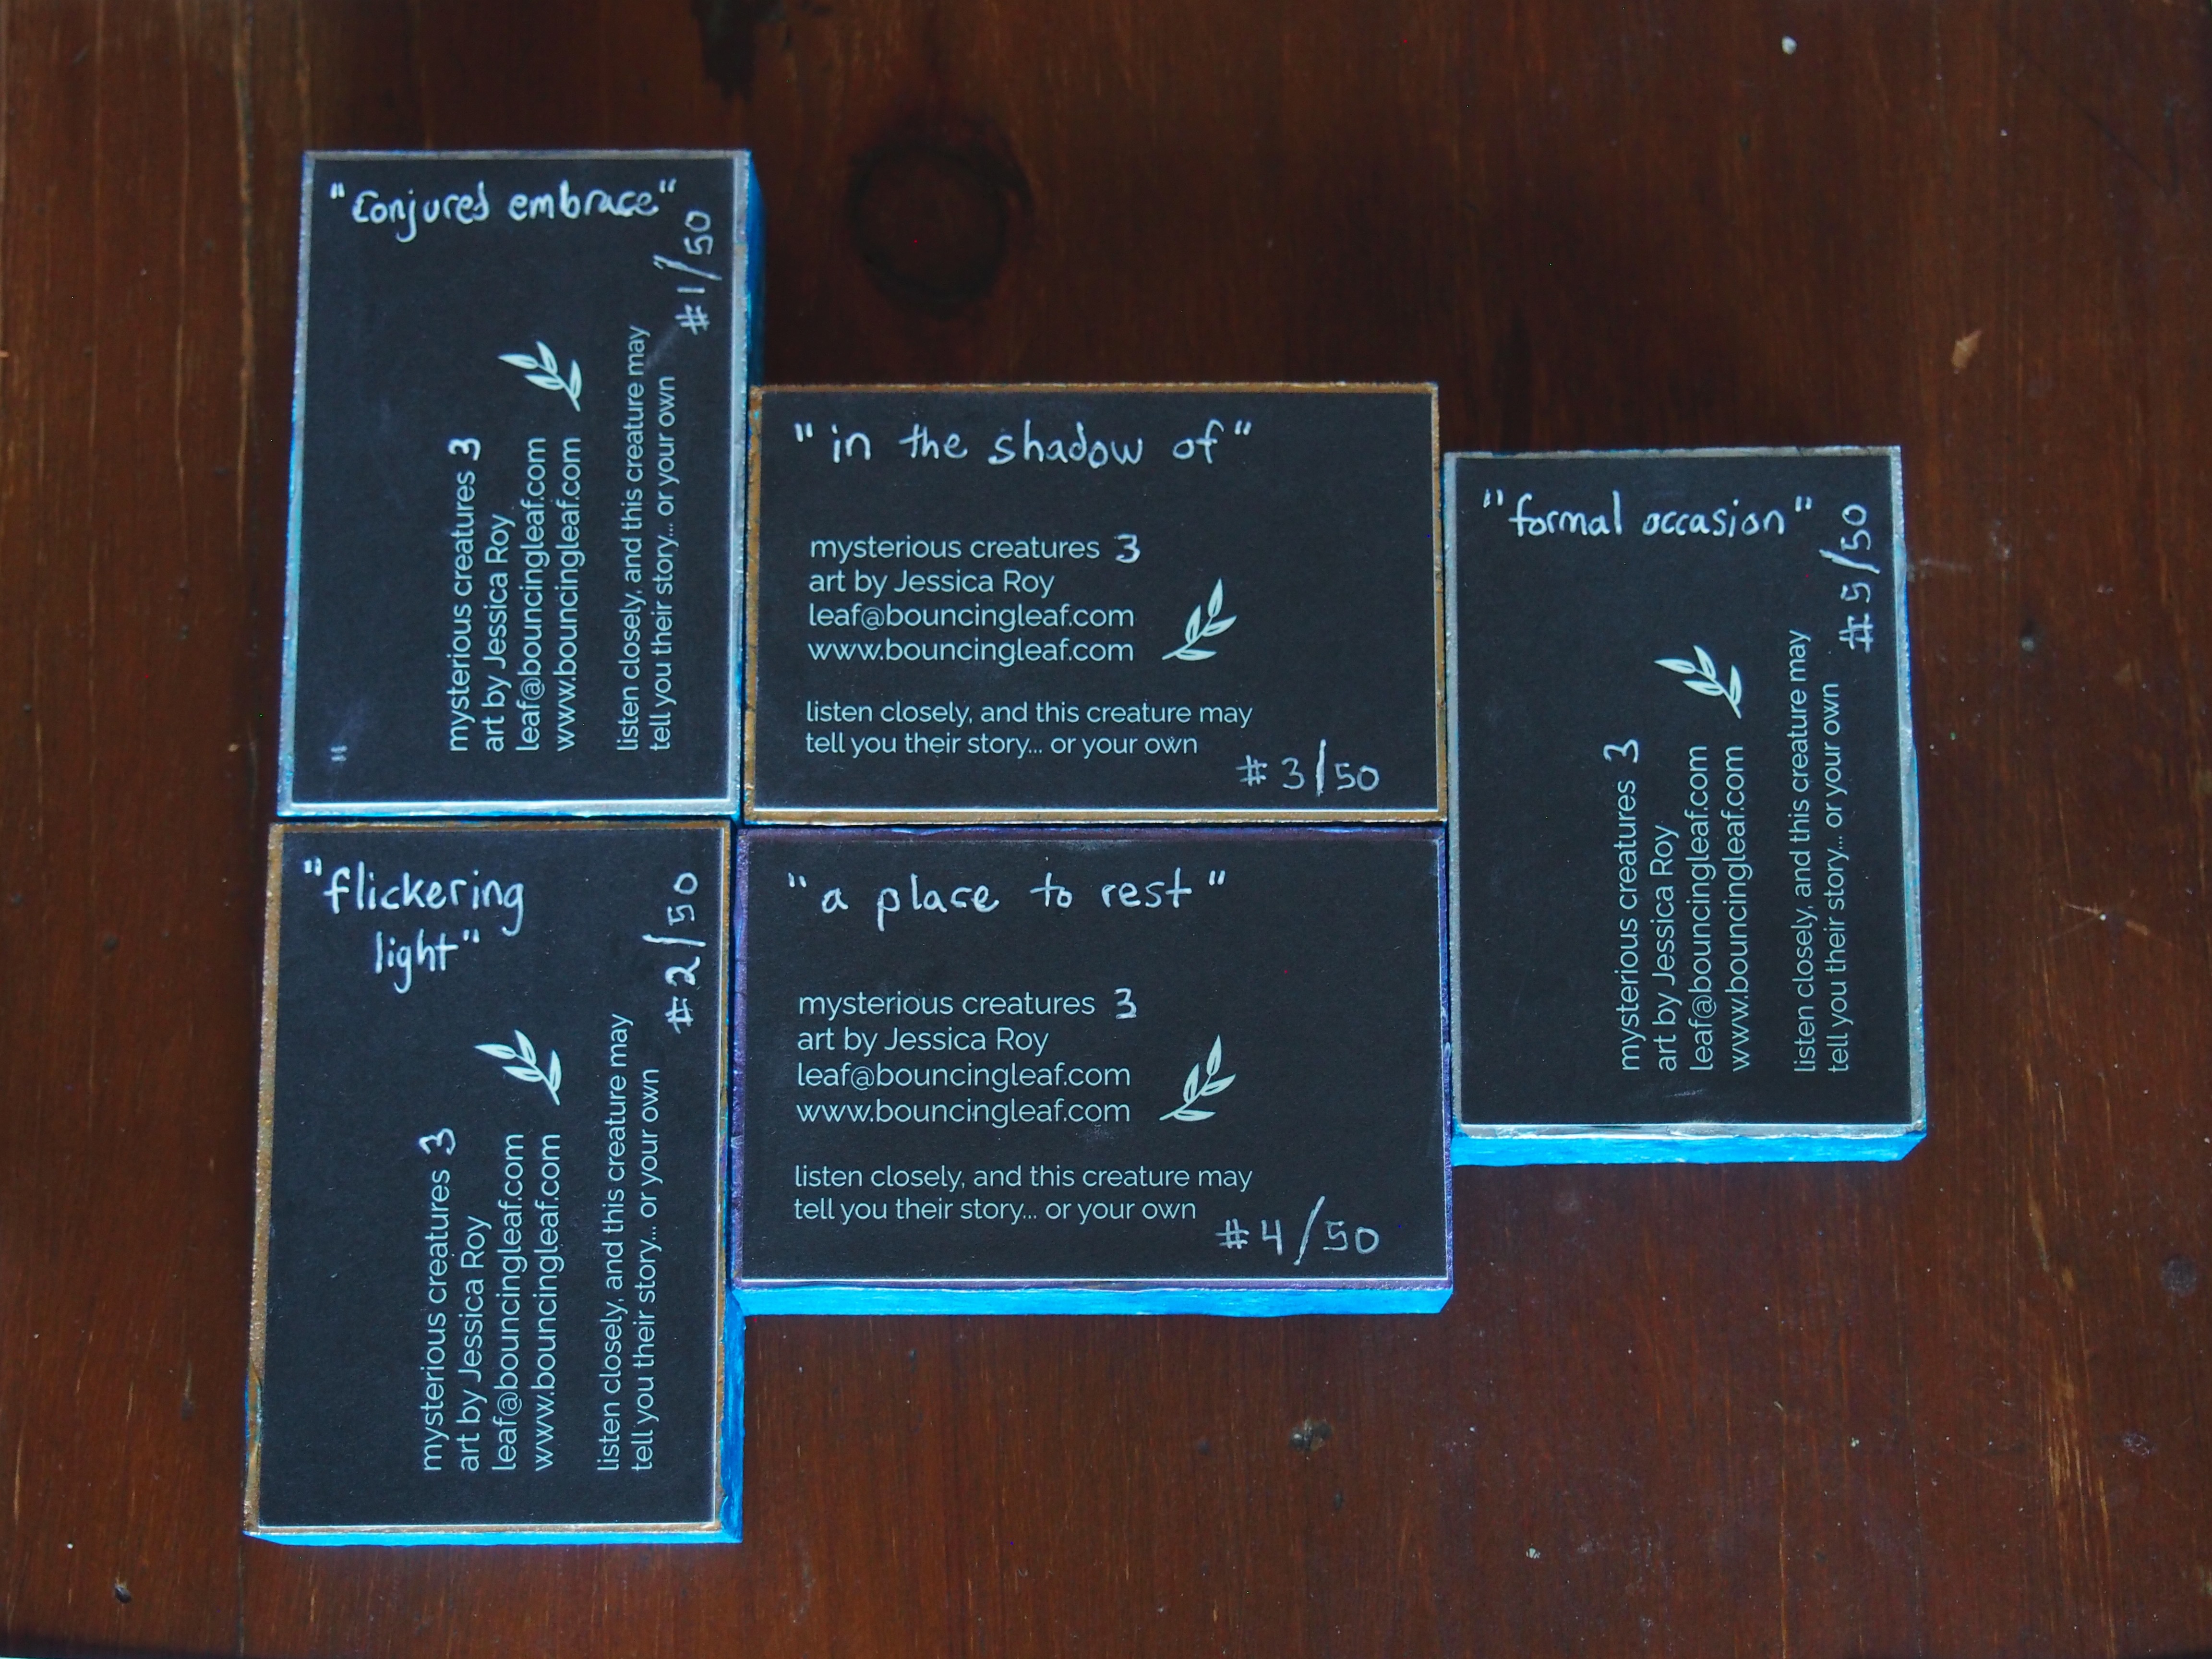 "conjured embrace"
mysterious creatures 3
art by Jessica Roy
leaf@bouncingleaf.com
www.bouncingleaf.com
listen closely, and this creature may
tell you their story... or your own
#1/50
"flickering
light"
mysterious creatures 3
art by Jessica Roy
leaf@bouncingleaf.com
www.bouncingleaf.com
listen closely, and this creature may
tell you their story... or your own
#2/50
"in the shadow of"
mysterious creatures 3
art by Jessica Roy
leaf@bouncingleaf.com
www.bouncingleaf.com
listen closely, and this creature may
tell you their story... or your own
#3/50
"a place to rest"
mysterious creatures 3
art by Jessica Roy
leaf@bouncingleaf.com
www.bouncingleaf.com
listen closely, and this creature may
tell you their story... or your own
#4/50
"formal occasion"
mysterious creatures 3
art by Jessica Roy
leaf@bouncingleaf.com
www.bouncingleaf.com
listen closely, and this creature may
tell you their story... or your own
#5/50